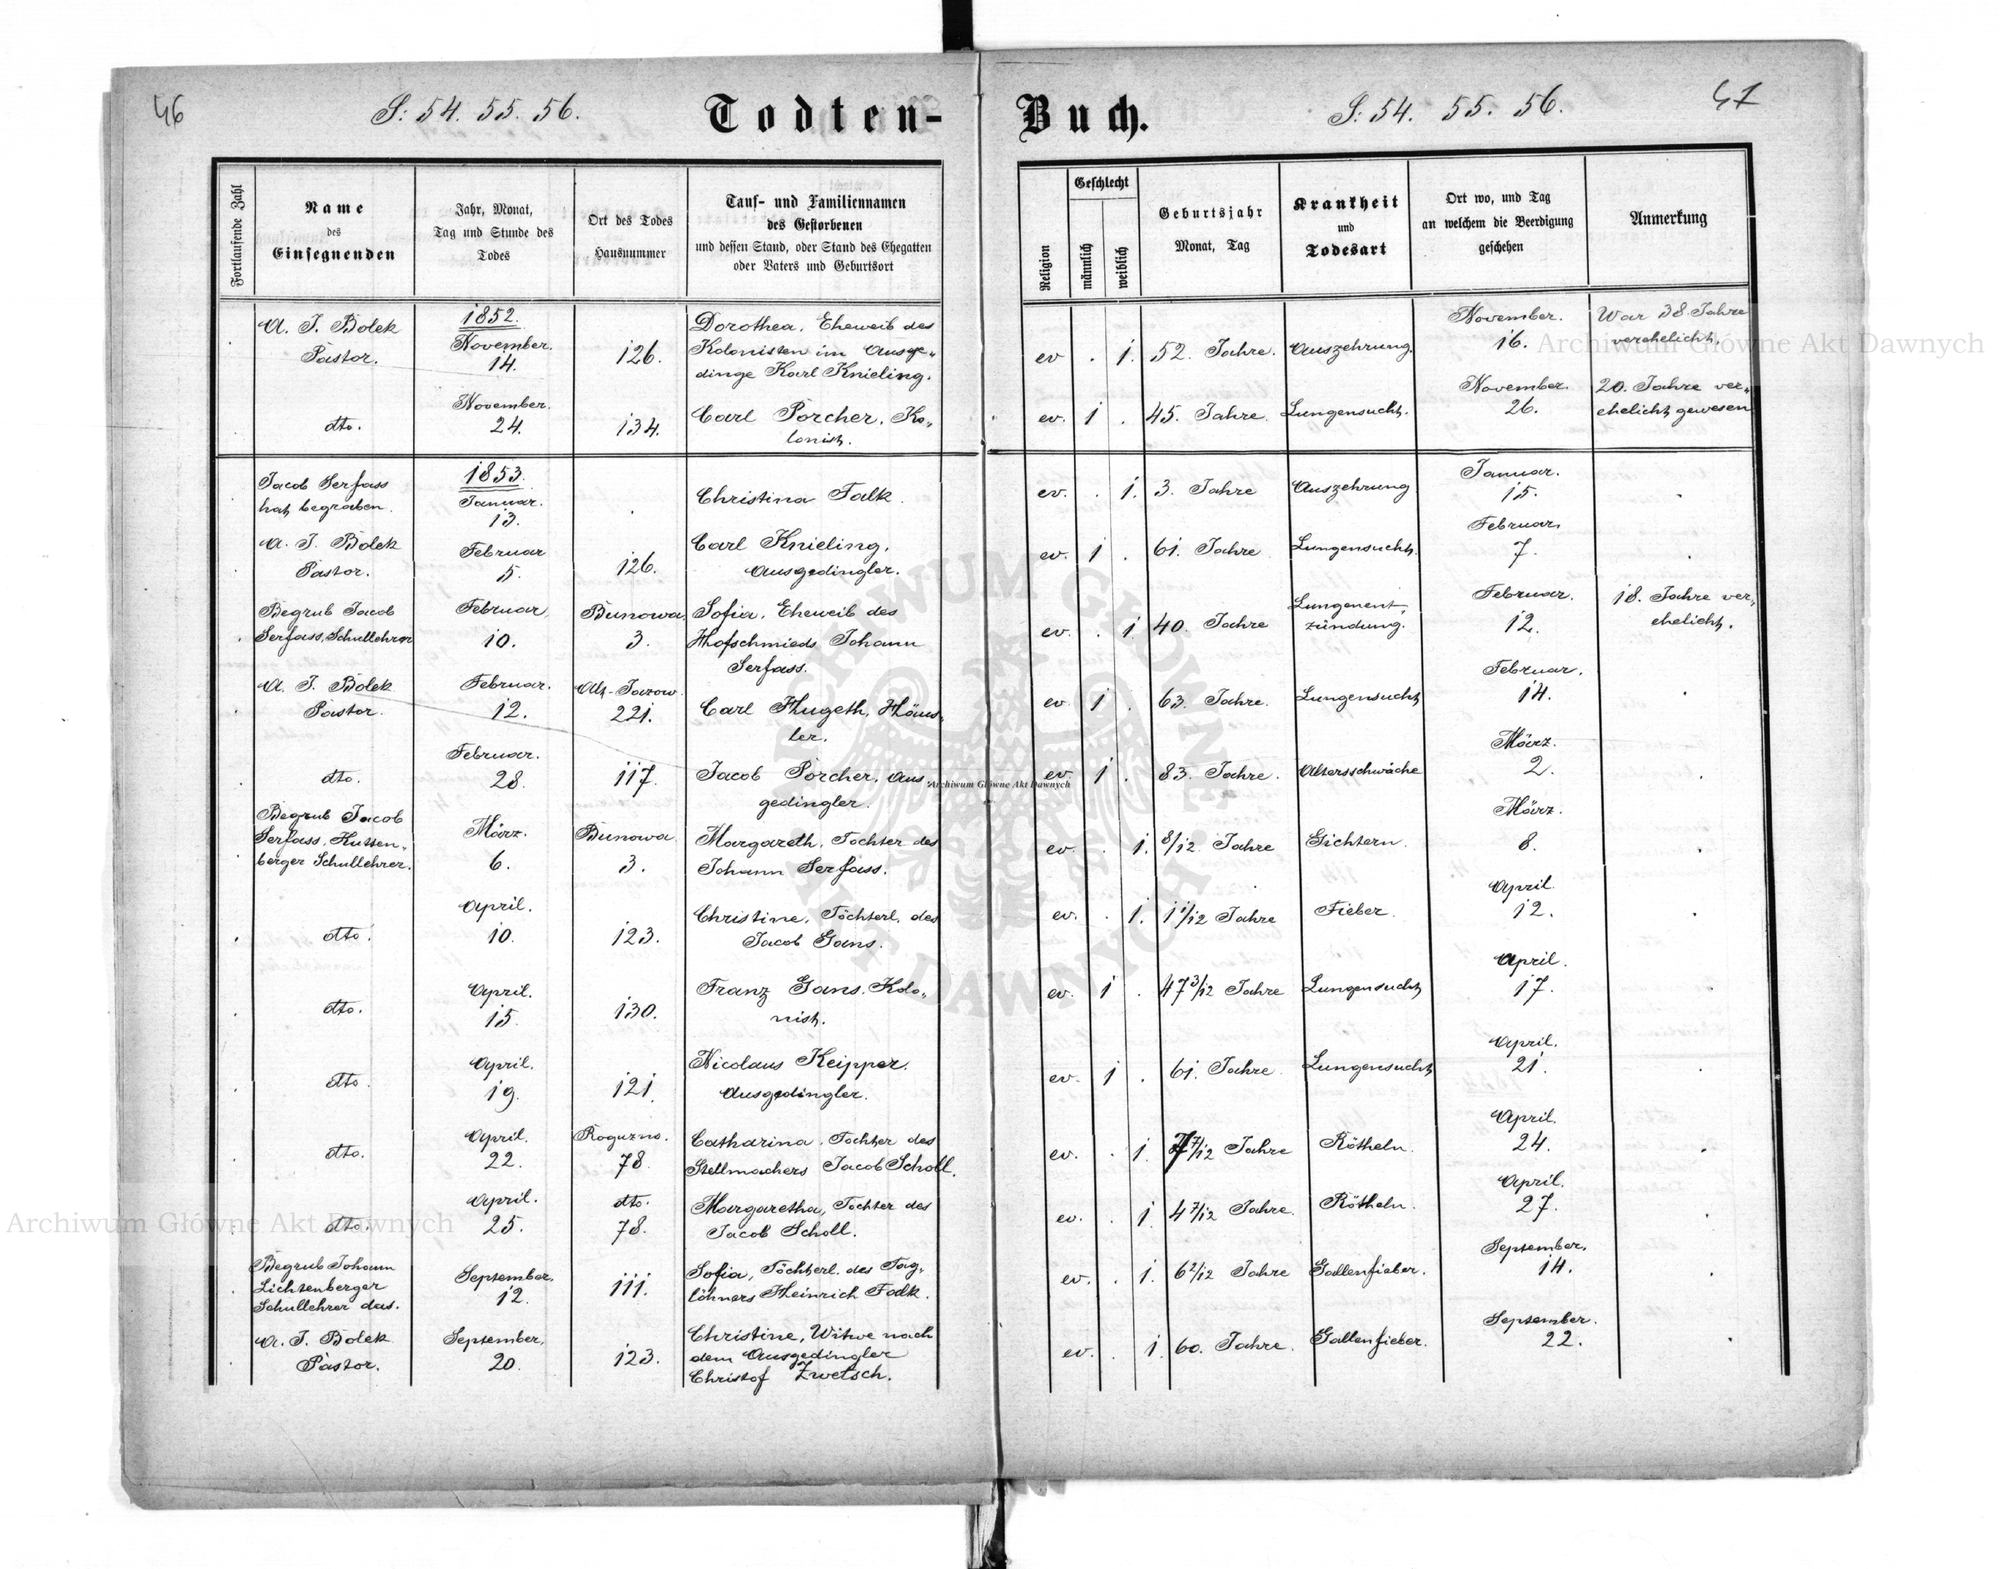 46
S: 54. 55. 56.
Todten-
Buch.
S: 54. 55. 56.
47
Fortlaufende Zahl
Name
des
Einsegnenden
Jahr, Monat,
Tag und Stunde des
Todes
Ort des Todes
Hausnummer
Tauf- und Familiennamen
des Gestorbenen
und dessen Stand, oder Stand des Ehegatten
oder Vaters und Geburtsort
Religion
Geschlecht
männlich
weiblich
Geburtsjahr
Monat, Tag
Krankheit
und
Todesart
Ort wo, und Tag
an welchem die Beerdigung
geschehen
Anmerkung
A. J. Bolek
Pastor.
1852.
November.
14.
126.
Dorothea, Eheweib des
Kolonisten im Ausge„
dinge Karl Knieling.
ev . 1. 52. Jahre. Auszehrung.
November.
16.
War 38 Jahre
verehelicht.
dto.
November.
24.
134.
Carl Porcher, Ko„
lonist.
ev. 1 . 45. Jahre. Lungensucht.
November.
26.
20. Jahre ver„
ehelicht gewesen
Jacob Serfass
hat begraben.
1853.
Januar.
13.
.
Christina Falk.
ev. . 1. 3. Jahre Auszehrung
Januar.
15.
.
A. J. Bolek
Pastor.
Februar
5.
126.
Carl Knieling,
Ausgedingler.
ev. 1 . 61. Jahre Lungensucht.
Februar,
7.
.
Begrub Jacob
Serfass, Schullehrer
Februar,
10.
Bunowa,
3.
Sofia, Eheweib des
Hofschmieds Johann
Serfass.
ev. . 1 40. Jahre
Lungenent„
zündung.
Februar.
12.
18. Jahre ver„
ehelicht.
A. J. Bolek
Pastor.
Februar.
12.
Alt-Jazow
221.
Carl Hugeth, Häus„
ler.
ev 1 . 63. Jahre. Lungensucht
Februar.
14.
.
dto.
Februar.
28.
117.
Jacob Porcher, Aus
gedingler.
ev 1 . 83. Jahre. Altersschwäche
März.
2.
.
Begrub Jacob
Serfass, Kutten„
berger Schullehrer.
März.
6.
Bunowa
3.
Margareth, Tochter des
Johann Serfass.
ev. . 1. 8/12 Jahre Gichtern.
März.
8.
.
dto.
April.
10.
123.
Christine, Töchterl. des
Jacob Gans.
ev. . 1. 1 1/12 Jahre Fieber
April
12.
.
dto.
April.
15.
130.
Franz Gans. Kolo„
nist.
ev. 1 . 47 3/12 Jahre Lungensucht
April.
17.
dto.
April.
19.
121.
Nicolaus Keipper.
Ausgedingler.
ev. 1 . 61. Jahre. Lungensucht
April.
21.
dto.
April.
22.
Roguzno.
78.
Catharina, Tochter des
Stellmachers Jacob Scholl.
ev. . 1. 7/12 Jahre Rötheln.
April.
24.
.
dto.
April.
25.
dto.
78.
Margaretha, Tochter des
Jacob Scholl.
ev. . 1. 4 7/12 Jahre. Rötheln.
April.
27.
.
Begrub Johann
Lichtenberger
Schullehrer das.
September.
12.
111.
Sofia, Töchterl. des Tag„
löhners Heinrich Falk.
ev. . 1. 6 2/12 Jahre Gallenfieber.
September.
14.
.
A. J. Bolek
Pastor.
September.
20.
123.
Christine, Witwe nach
dem Ausgedingler
Christof Zwetsch.
ev. . 1. 60. Jahre. Gallenfieber.
September.
22.
.
Archiwum Główne Akt Dawnych
Archiwum Główne Akt Dawnych
Archiwum Główne Akt Dawnych
ARCHIWUM GŁÓWNE AKT DAWNYCH